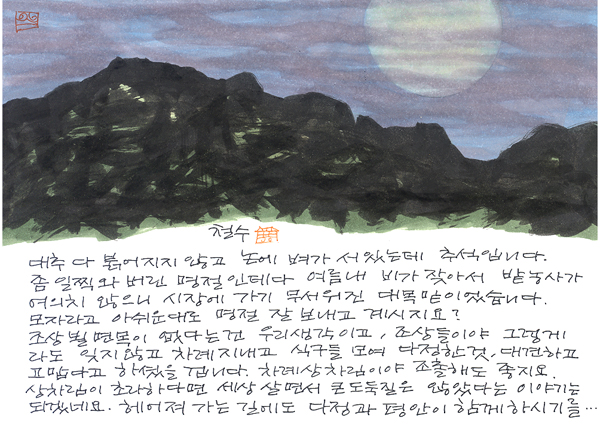 철수
대추 다 붉어지지 않고 논에 벼가 서 있는데 추석입니다.
좀 일찍 와 버린 명절인데다 여름내 비가 잦아서 밭농사가
여의치 않으니 시장에 가기 무서워진 대목 맡이었습니다.
모자라고 아쉬운대로 명절 잘 보내고 계시지요?
조상 뵐 면목이 없다는건 우리생각이고, 조상들이야 그렇게
라도 잊지않고 차례지내고 식구들 모여 다정한것, 대견하고
고맙다고 하셨을 겁니다. 차례상차림이야 조촐해도 좋지요.
상차림이 초라하다면 세상 살면서 큰도둑질은 않았다는 이야기는
되겠네요. 헤어져 가는 길에도 다정과 평안이 함께하시기를...